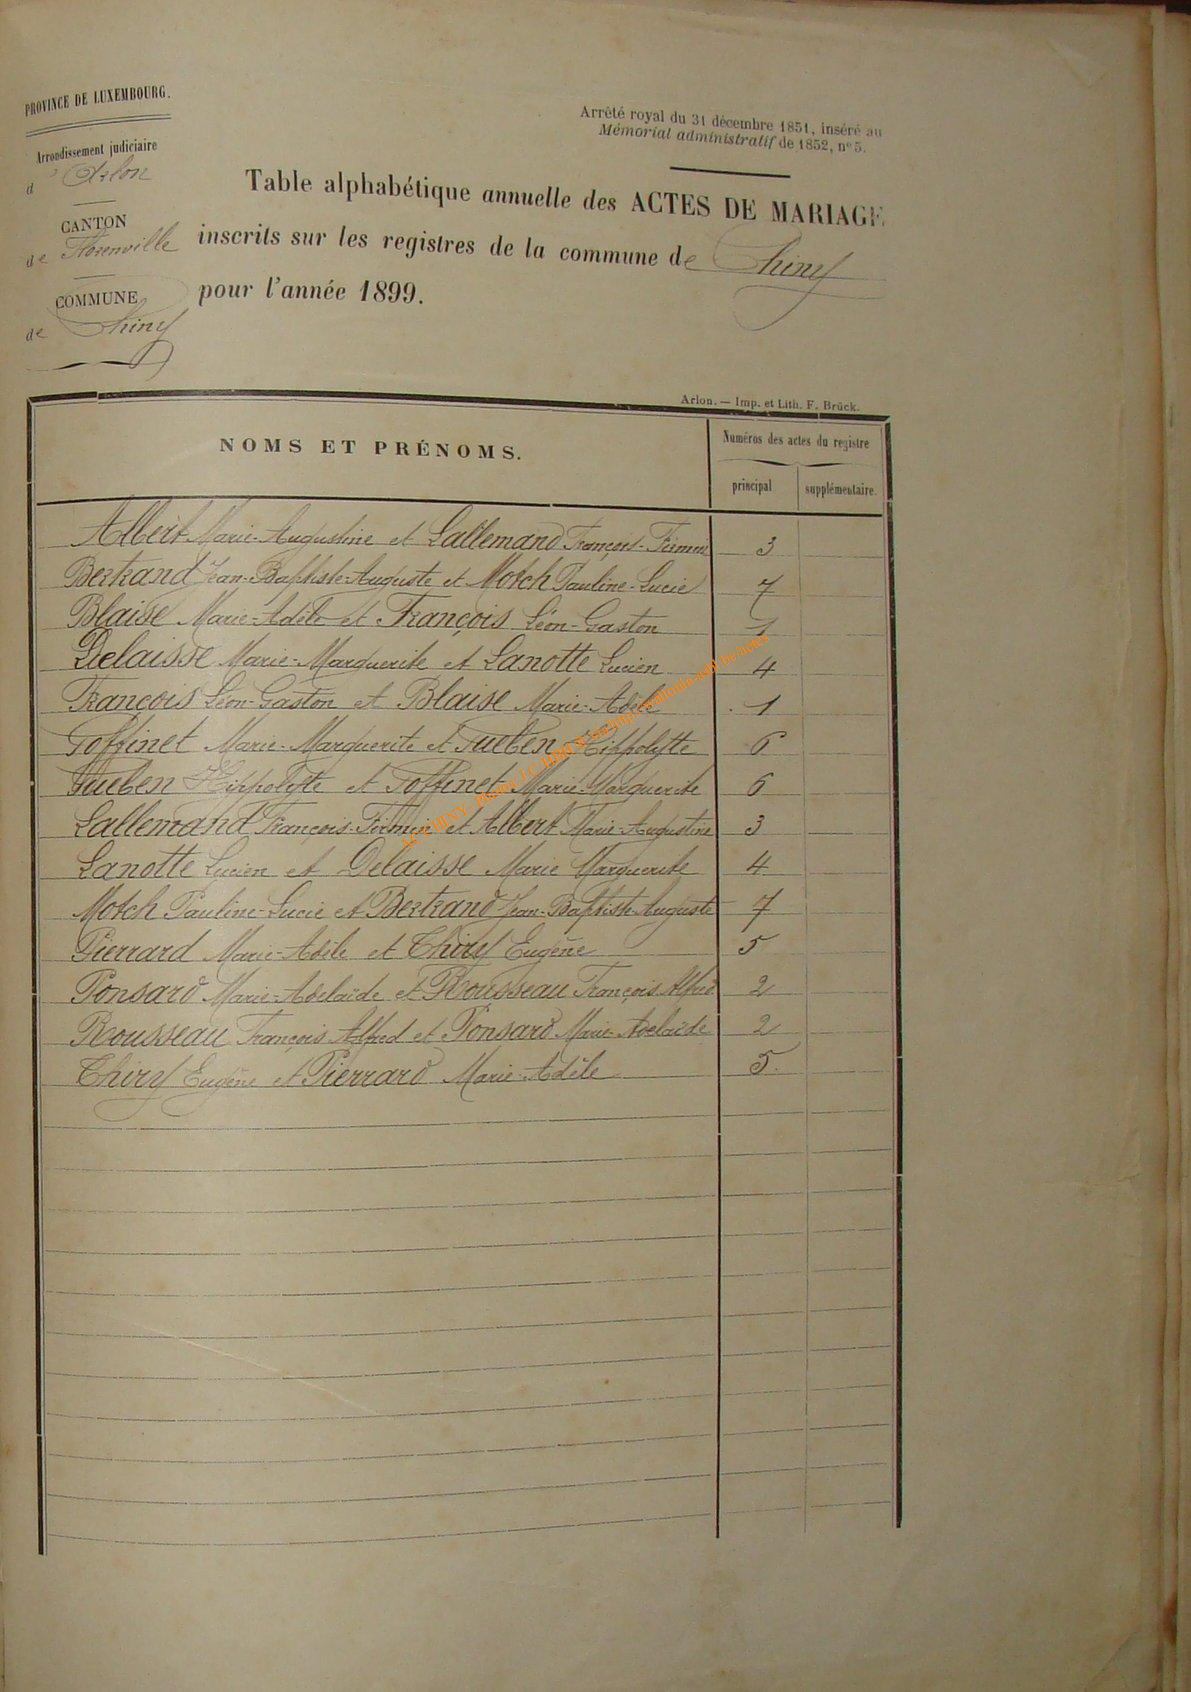 PROVINCE DE LUXEMBOURG.
Arrondissement judiciaire
d'Arlon
CANTON
de Florenville
COMMUNE
de Chiny
Arrêté royal du 31 décembre 1851, inséré au
Mémorial administratif de 1852, n° 5.
Table alphabétique annuelle des ACTES DE MARIAGE
inscrits sur les registres de la commune de Chiny
pour l'année 1899.
Arlon. — Imp. et Lith. F. Brück.
NOMS ET PRÉNOMS.
Numéros des actes du registre
principal
supplémentaire.
Albert Marie-Augustine et Lallemand François-Firmin 3
Bertrand Jean-Baptiste-Auguste et Motch Pauline-Lucie 7
Blaise Marie-Adèle et François Léon-Gaston 1
Delaisse Marie-Marguerite et Lanotte Lucien 4
François Léon-Gaston et Blaise Marie-Adèle 1
Goffinet Marie-Marguerite et Gueben Hippolyte 6
Gueben Hippolyte et Goffinet Marie-Marguerite 6
Lallemand François-Firmin et Albert Marie-Augustine 3
Lanotte Lucien et Delaisse Marie Marguerite 4
Motch Pauline-Lucie et Bertrand Jean-Baptiste-Auguste 7
Pierrard Marie-Adèle et Thiry Eugène 5
Ponsard Marie-Adelaïde et Rousseau François Alfred 2
Rousseau François Alfred et Ponsard Marie-Adelaïde 2
Thiry Eugène et Pierrard Marie-Adèle 5.